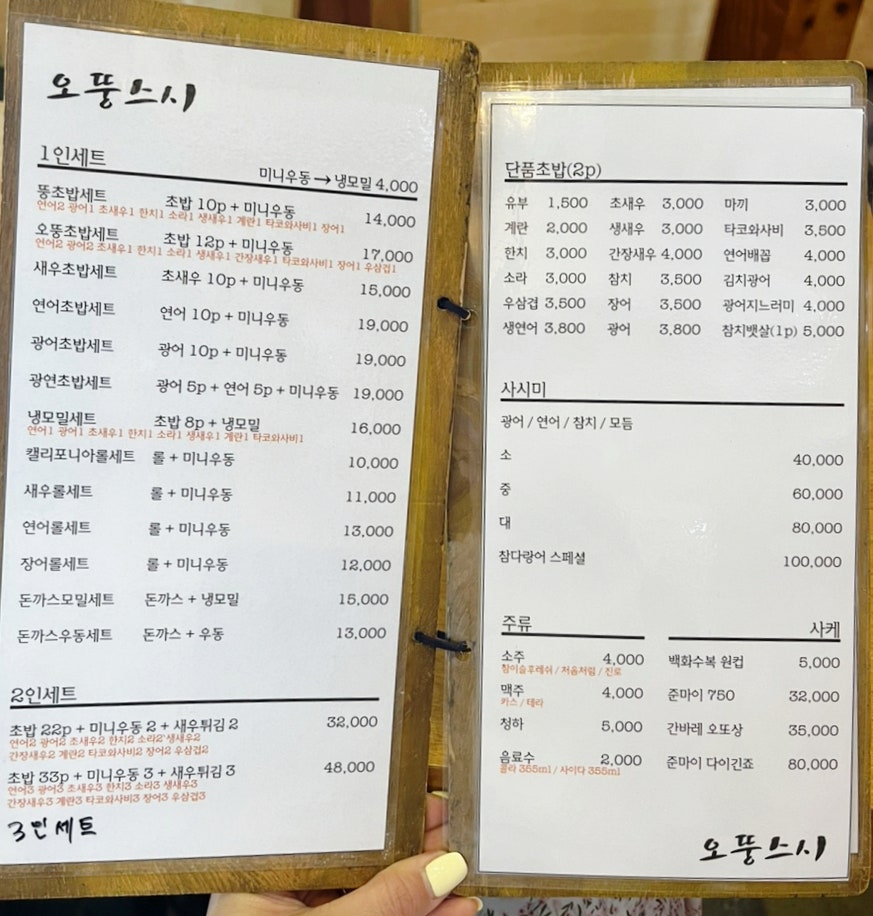 오뚱스시
1인세트
미니우동→냉모밀 4,000
뚱초밥세트 초밥 10p + 미니우동 14,000
연어2 광어1 초새우1 한치1 소라1 생새우1 계란1 타코와사비1 장어1
오뚱초밥세트 초밥 12p + 미니우동 17,000
연어2 광어2 초새우1 한치1 소라1 생새우1 간장새우1 타코와사비1 장어1 우삼겹1
새우초밥세트 초새우 10p + 미니우동 15,000
연어초밥세트 연어 10p + 미니우동 19,000
광어초밥세트 광어 10p + 미니우동 19,000
광연초밥세트 광어 5p + 연어 5p + 미니우동 19,000
냉모밀세트 초밥 8p + 냉모밀 16,000
연어1 광어1 초새우1 한치1 소라1 생새우1 계란1 타코와사비1
캘리포니아롤세트 롤 + 미니우동 10,000
새우롤세트 롤 + 미니우동 11,000
연어롤세트 롤 + 미니우동 13,000
장어롤세트 롤 + 미니우동 12,000
돈까스모밀세트 돈까스 + 냉모밀 15,000
돈까스우동세트 돈까스 + 우동 13,000
2인세트
초밥 22p + 미니우동 2 + 새우튀김 2 32,000
연어2 광어2 초새우2 한치2 소라2 생새우2
간장새우2 계란2 타코와사비2 장어2 우삼겹2
초밥 33p + 미니우동 3 + 새우튀김 3 48,000
연어3 광어3 초새우3 한치3 소라3 생새우3
간장새우3 계란3 타코와사비3 장어3 우삼겹3
3인세트
단품초밥(2p)
유부 1,500 초새우 3,000 마끼 3,000
계란 2,000 생새우 3,000 타코와사비 3,500
한치 3,000 간장새우 4,000 연어배꼽 4,000
소라 3,000 참치 3,500 김치광어 4,000
우삼겹 3,500 장어 3,500 광어지느러미 4,000
생연어 3,800 광어 3,800 참치뱃살(1p) 5,000
사시미
광어 / 연어 / 참치 / 모듬
소 40,000
중 60,000
대 80,000
참다랑어 스페셜 100,000
주류 사케
소주 4,000 백화수복 원컵 5,000
참이슬후레쉬 / 처음처럼 / 진로
맥주 4,000 준마이 750 32,000
카스 / 테라
청하 5,000 간바레 오또상 35,000
음료수 2,000 준마이 다이긴죠 80,000
콜라 355ml / 사이다 355ml
오뚱스시